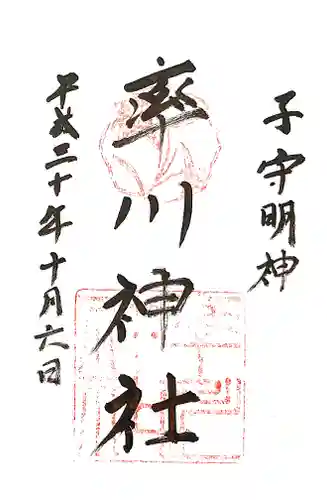 子守明神
率川神社
平成二十年十月六日